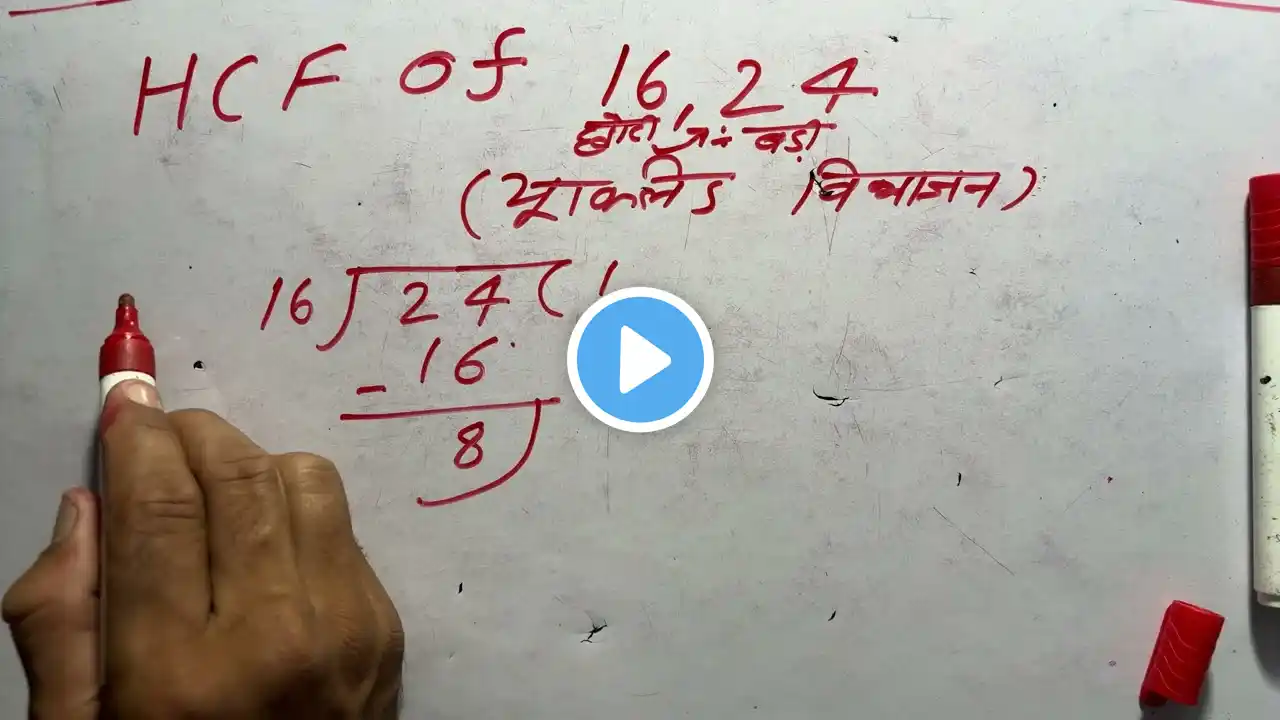 HCF Of 16, 24
छोटी ÷ बड़ी
(यूाकलिड विभाजन)
16) 24 ( 1
- 16
8